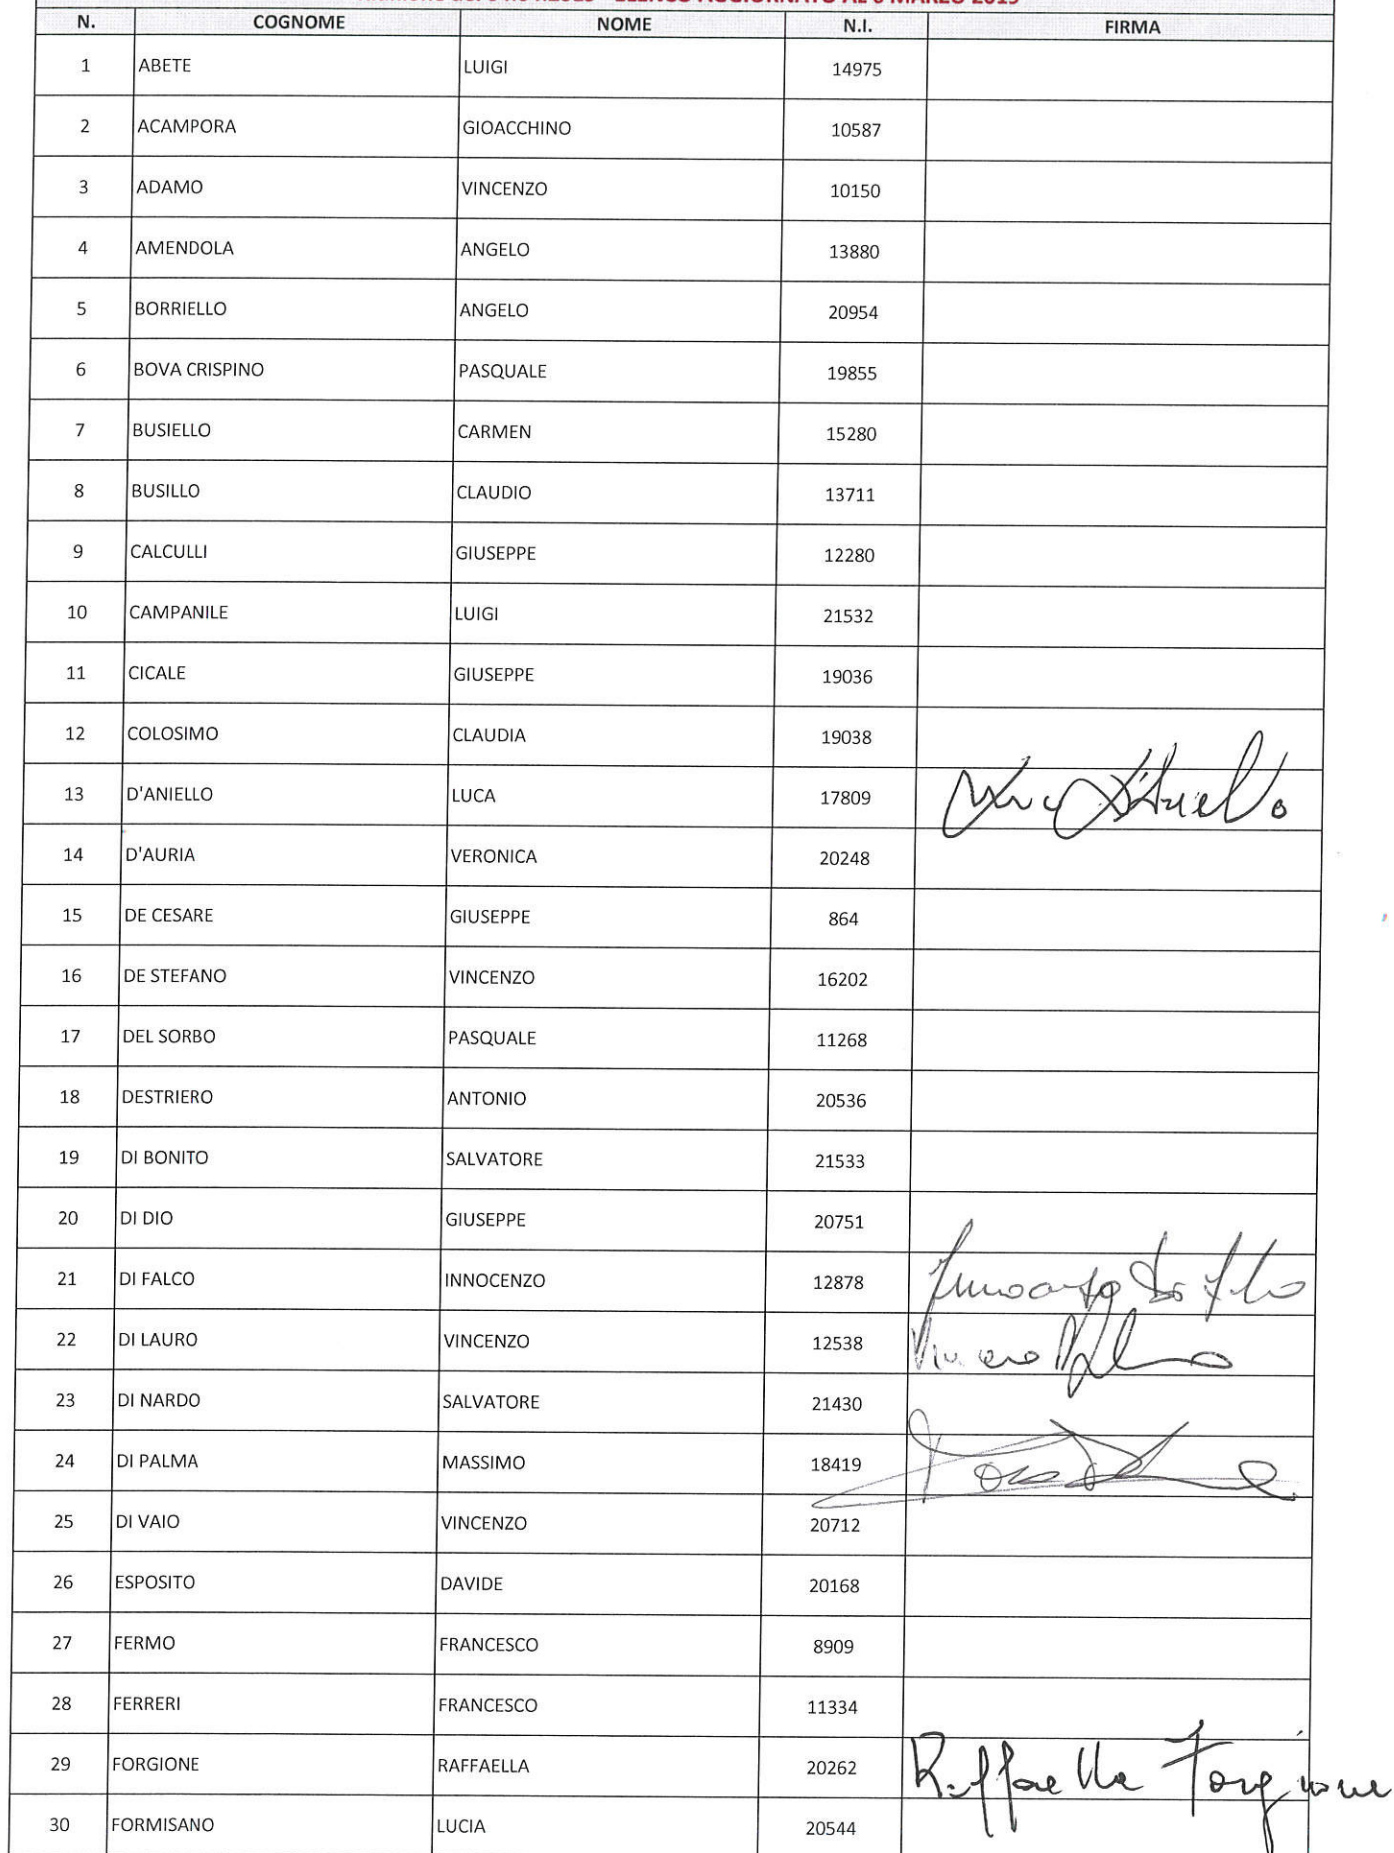 ELENCO AGGIORNATO AL 6 MARZO 2019
N. COGNOME NOME N.I. FIRMA
1 ABETE LUIGI 14975
2 ACAMPORA GIOACCHINO 10587
3 ADAMO VINCENZO 10150
4 AMENDOLA ANGELO 13880
5 BORRIELLO ANGELO 20954
6 BOVA CRISPINO PASQUALE 19855
7 BUSIELLO CARMEN 15280
8 BUSILLO CLAUDIO 13711
9 CALCULLI GIUSEPPE 12280
10 CAMPANILE LUIGI 21532
11 CICALE GIUSEPPE 19036
12 COLOSIMO CLAUDIA 19038
13 D'ANIELLO LUCA 17809 Luca D'Aniello
14 D'AURIA VERONICA 20248
15 DE CESARE GIUSEPPE 864
16 DE STEFANO VINCENZO 16202
17 DEL SORBO PASQUALE 11268
18 DESTRIERO ANTONIO 20536
19 DI BONITO SALVATORE 21533
20 DI DIO GIUSEPPE 20751
21 DI FALCO INNOCENZO 12878 Innocenzo Di Falco
22 DI LAURO VINCENZO 12538
23 DI NARDO SALVATORE 21430
24 DI PALMA MASSIMO 18419
25 DI VAIO VINCENZO 20712
26 ESPOSITO DAVIDE 20168
27 FERMO FRANCESCO 8909
28 FERRERI FRANCESCO 11334
29 FORGIONE RAFFAELLA 20262 Raffaella Forgione
30 FORMISANO LUCIA 20544